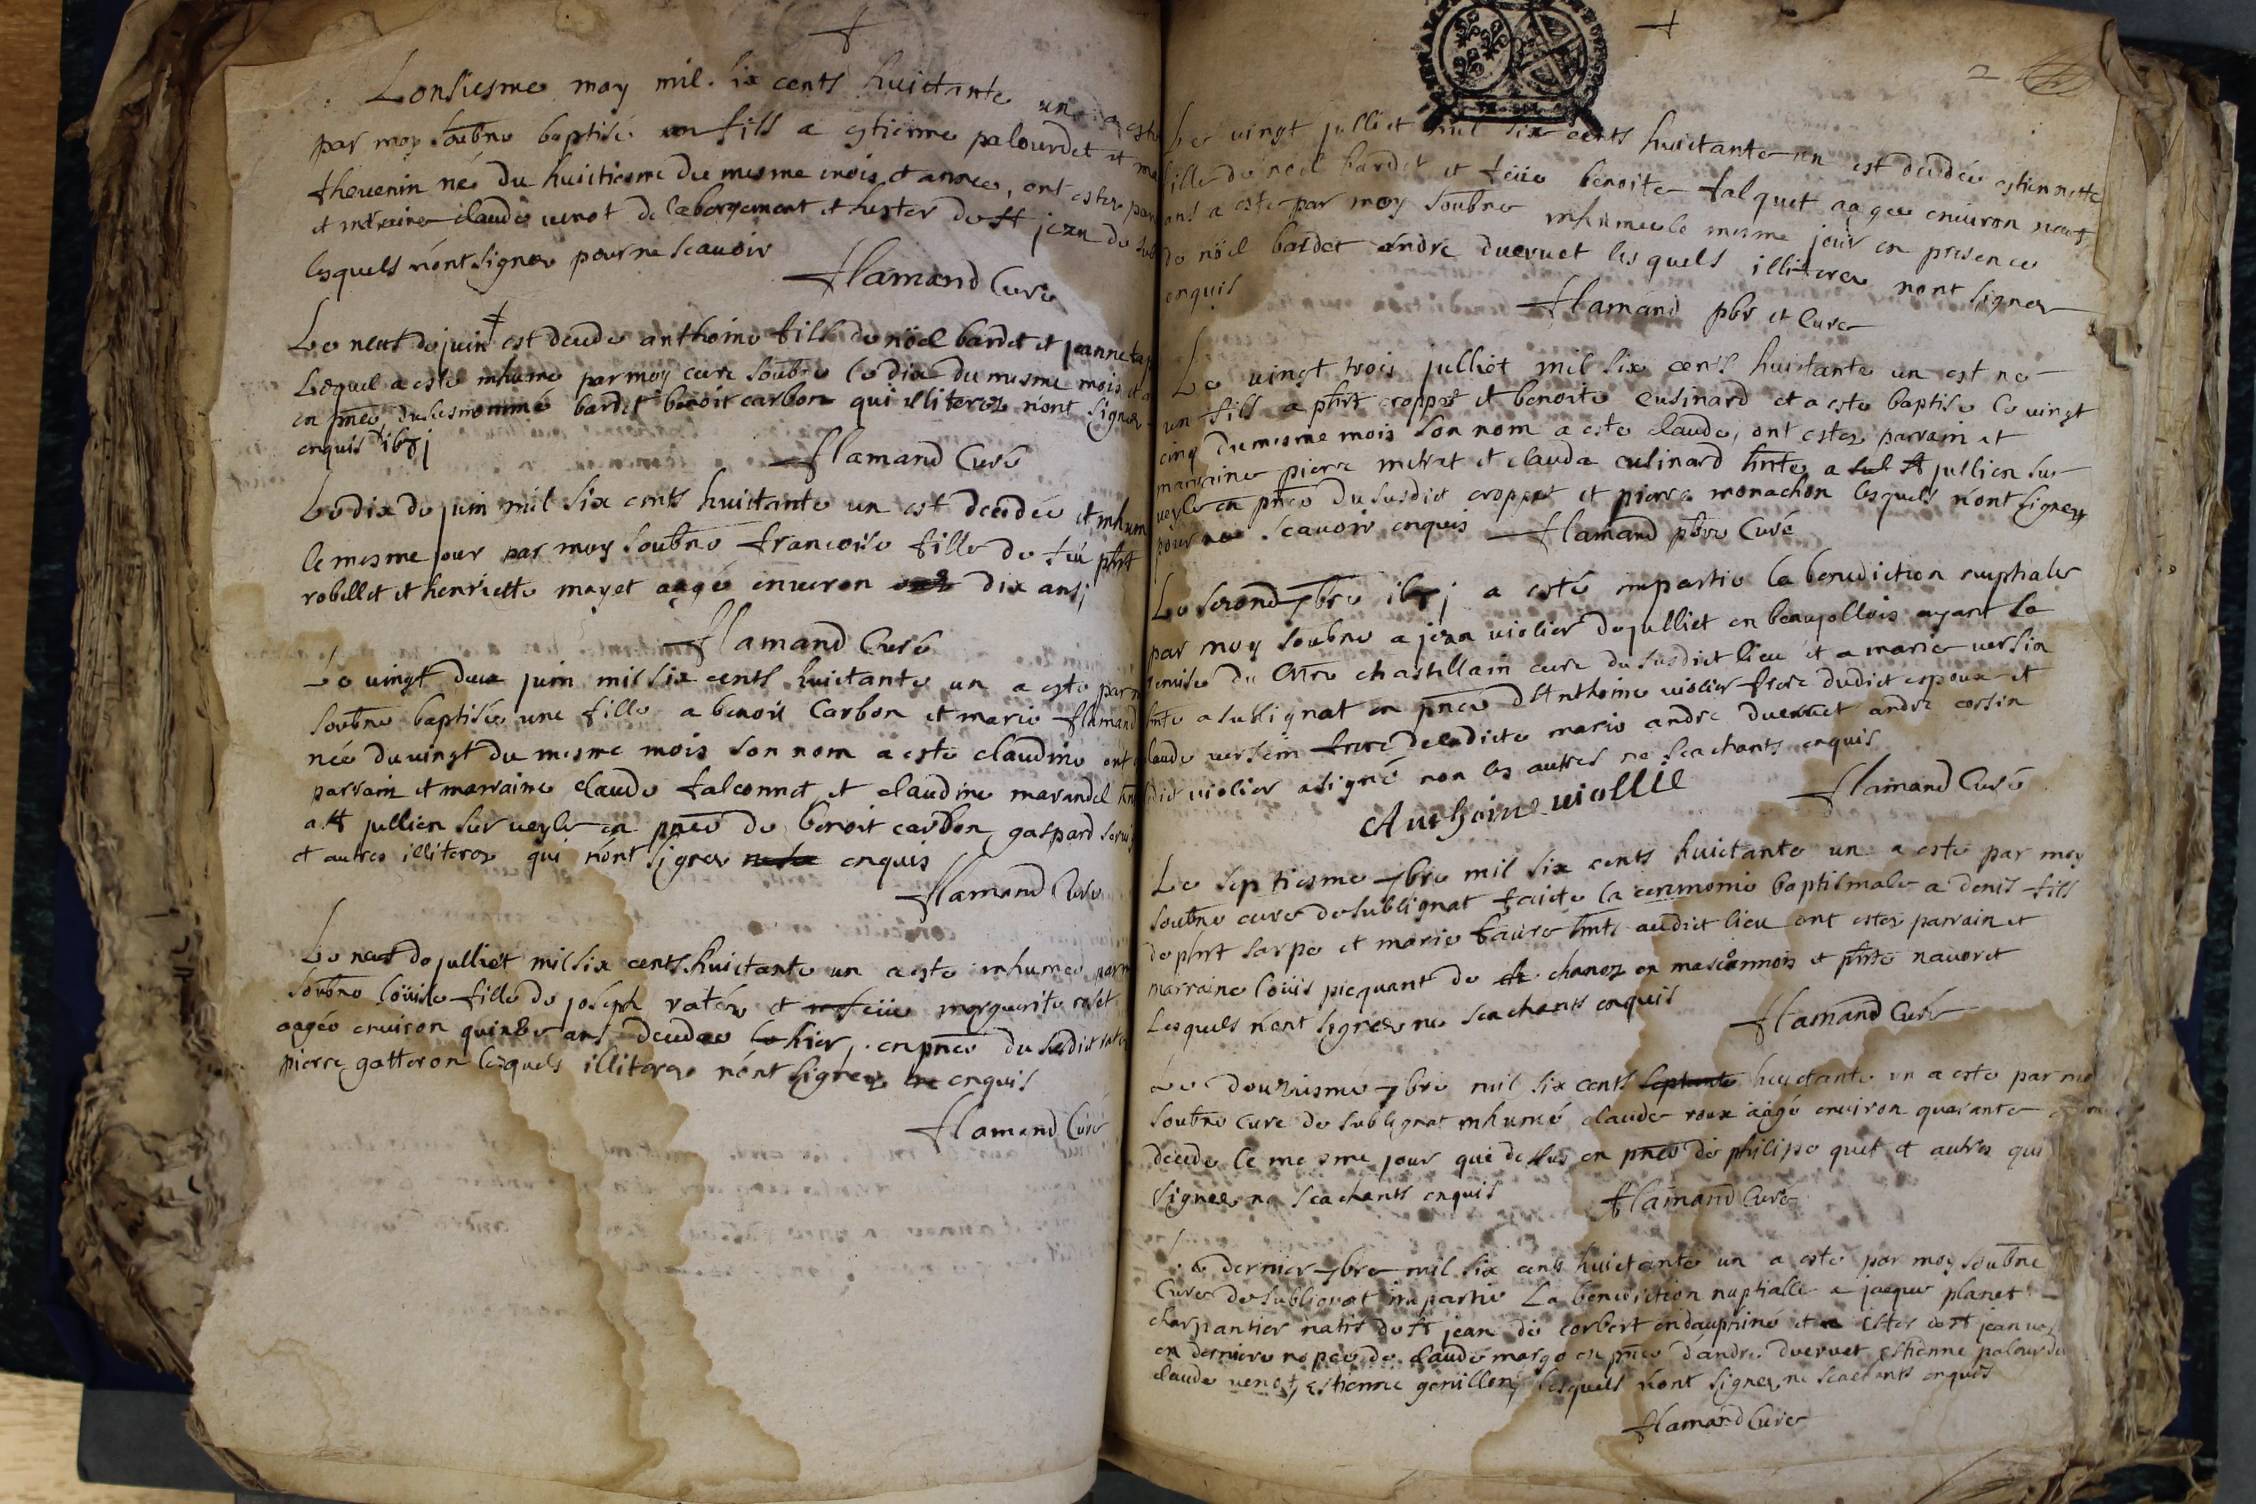 Lonsiesme may mil six cents huictante un a esté
par moy soubne baptisé un fils a estienne palourdet et
thevenin né du huictiesme du mesme mois et annee, ont estes
et marraine claude venot de laborgement et hester de st jean de
lesquels n'ont signes pour ne scavoir
flamand Curé
Le neuf de juin est decede anthoine fils de nöel bardet et jeanne
Lequel a esté inhume par moy curé soubne le dix du mesme mois et
en pnce du susnommé bardet benoit carbon qui illiteres n'ont signes
enquis 1681
flamand Curé
Le dix de juin mil six cents huictante un est decedée et inhum
le mesme jour par moy soubne francoise fille de feu phrt
robellet et henriette mayet aagé environ dix ans
flamand Curé
Le vingt deux juin mil six cents huictante un a esté par
soubne baptisée une fille a benoit Carbon et marie flamand
née du vingt du mesme mois son nom a esté claudine ont
parrain et marraine claude falconnet et claudine marandel
a st jullien sur veyle en pnce de benoit carbon, gaspard
et autres illiteres qui n'ont signes enquis
flamand Curé
Le neuf de julliet mil six cents huictante un a esté inhumee
soubne loüise fille de joseph ratéz et feüe marguerite
aagée environ quinze ans decedee hier, en pnce du susdict
pierre gatteron lesquels illiteres n'ont signes enquis
flamand Curé
2
Le vingt julliet mil six cents huictante un est decedée estiennette
fille de nöel bardet et feüe benoite falquet aagee environ neuf
ans a esté par moy soubne inhumee le mesme jour en presence
de nöel bardet andré duervet lesquels illiteres n'ont signes
enquis
flamand pbr et Curé
Le vingt trois julliet mil six cents huictante un est né
un fils a phrt croppet et benoite cusinard et a esté baptisé le vingt
cinq du mesme mois son nom a esté claude, ont estes parrain et
marraine pierre metret et clauda cusinard hnte a st jullien sur
veyle en pnce du susdict croppet et pierre monachon lesquels n'ont signes
pour ne scavoir enquis flamand pbre Curé
Le second 7bre 1681 a esté impartie la benediction nuptiale
par moy soubne a jean violier de julliet en beaujollois ayant la
remise du Mre chastillain curé du susdict lieu et a marie versin
hnte a sublignat en pnce d'Anthoine violier frere dudict espoux et
claude versin frere de ladicte marie andré duervet andré cossin
ledict violier a signé non les autres ne scachants enquis
Anthoine viollie flamand Curé
Le septiesme 7bre mil six cents huictante un a esté par moy
soubne curé de sublignat faicte la ceremonie baptismale a denis fils
de phrt sarpe et marie faure hnts audict lieu ont estes parrain et
marraine loüis picquant de chanoz en masconnois et phrte navoret
Lesquels n'ont signes ne scachants enquis
flamand Curé
Le douziesme 7bre mil six cents septante huictante un a esté par
soubne curé de sublignat inhumé claude roux aagé environ quarante
decedé le mesme jour que dessus en pnce de philipe quet et autres qui
signes ne scachants enquis flamand Curé
Le dernier 7bre mil six cents huictante un a esté par moy soubne
Curé de sublignat impartie La benediction nuptialle a jaques planet
charpantier natif de st jean de corbert en dauphiné et a Ester de st jean
en derniere nopce de claude margo en pnce d'andré duervet, estienne
claude venot, Estienne genillon, lesquels n'ont signes ne scachants enquis
flamand Curé